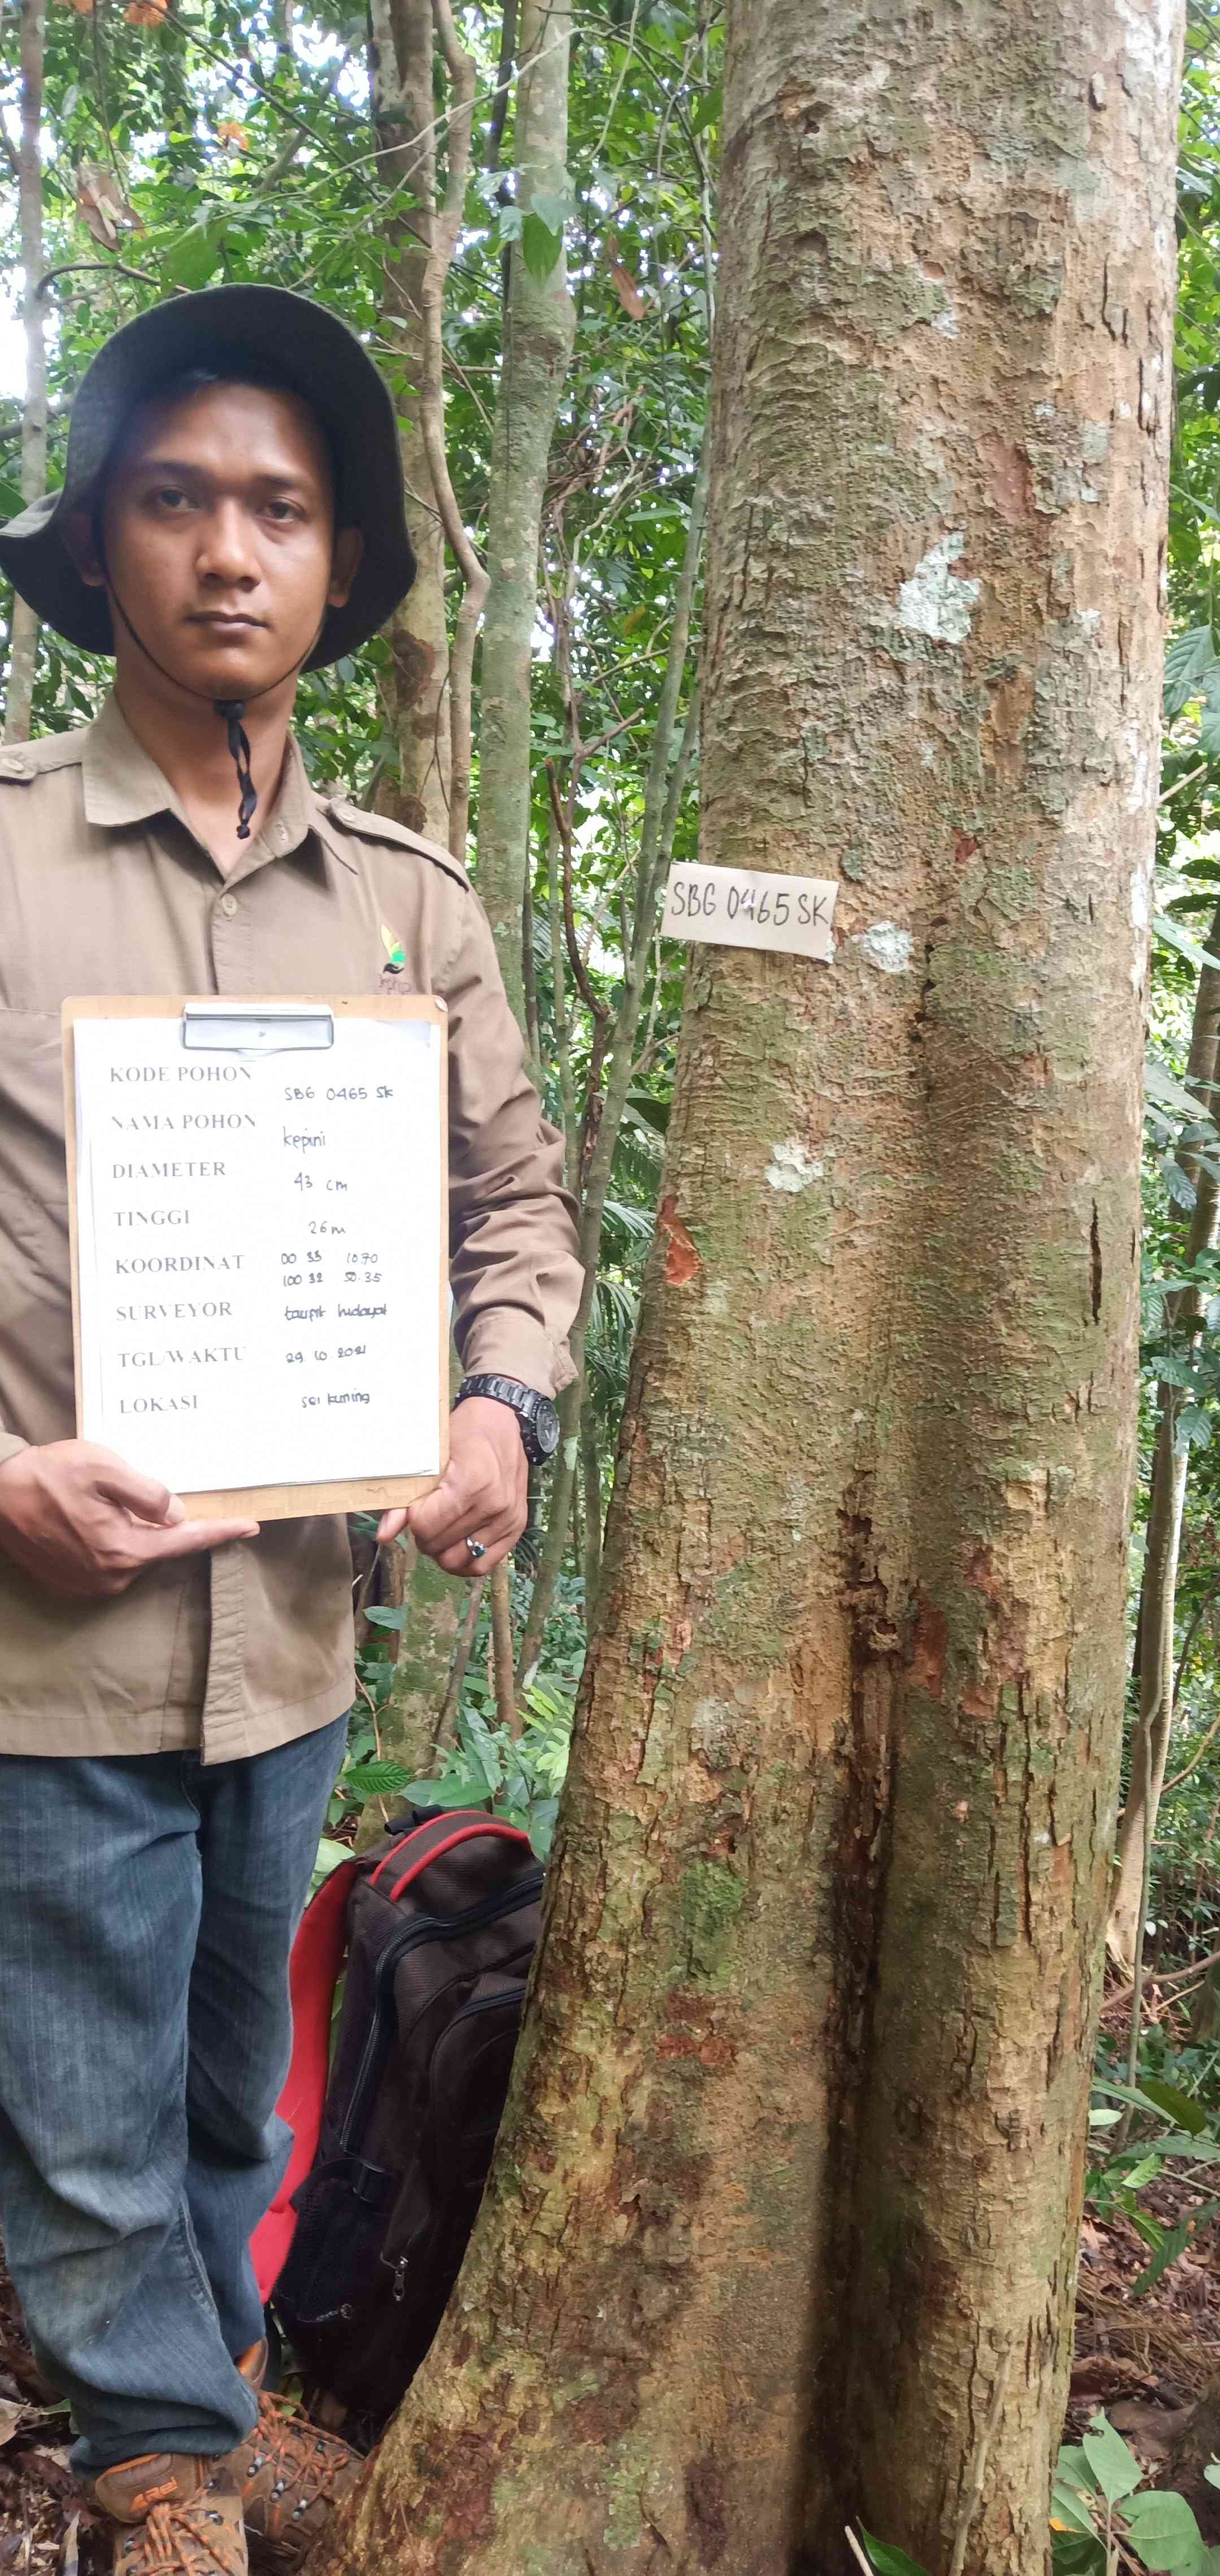 SBG 0465 SK
KODE POHON SBG 0465 SK
NAMA POHON kepini
DIAMETER 43 cm
TINGGI 26 m
KOORDINAT 00 33 10.70
100 32 50.35
SURVEYOR taupit hidayat
TGL/WAKTU 29.10.2021
LOKASI sei kuning